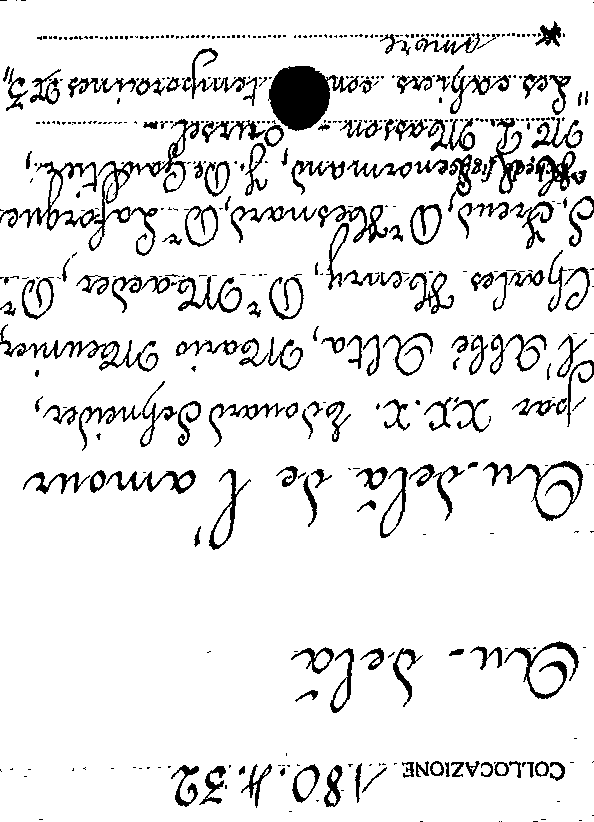 COLLOCAZIONE 180.H.32
Au-delà
Au-delà de l'amour
par X.X.X. Edouard Schneider,
l'Abbé Alta, Mario Meunier,
Charles Henry, Dr Maeder, Dr.
S. Freud, Dr Hesnard, Dr Laforgue
H.R. Lenormand, J. De Gaultier,
M.P. Masson - Oursel -
"Les cahiers contemporaines N 3"
amore